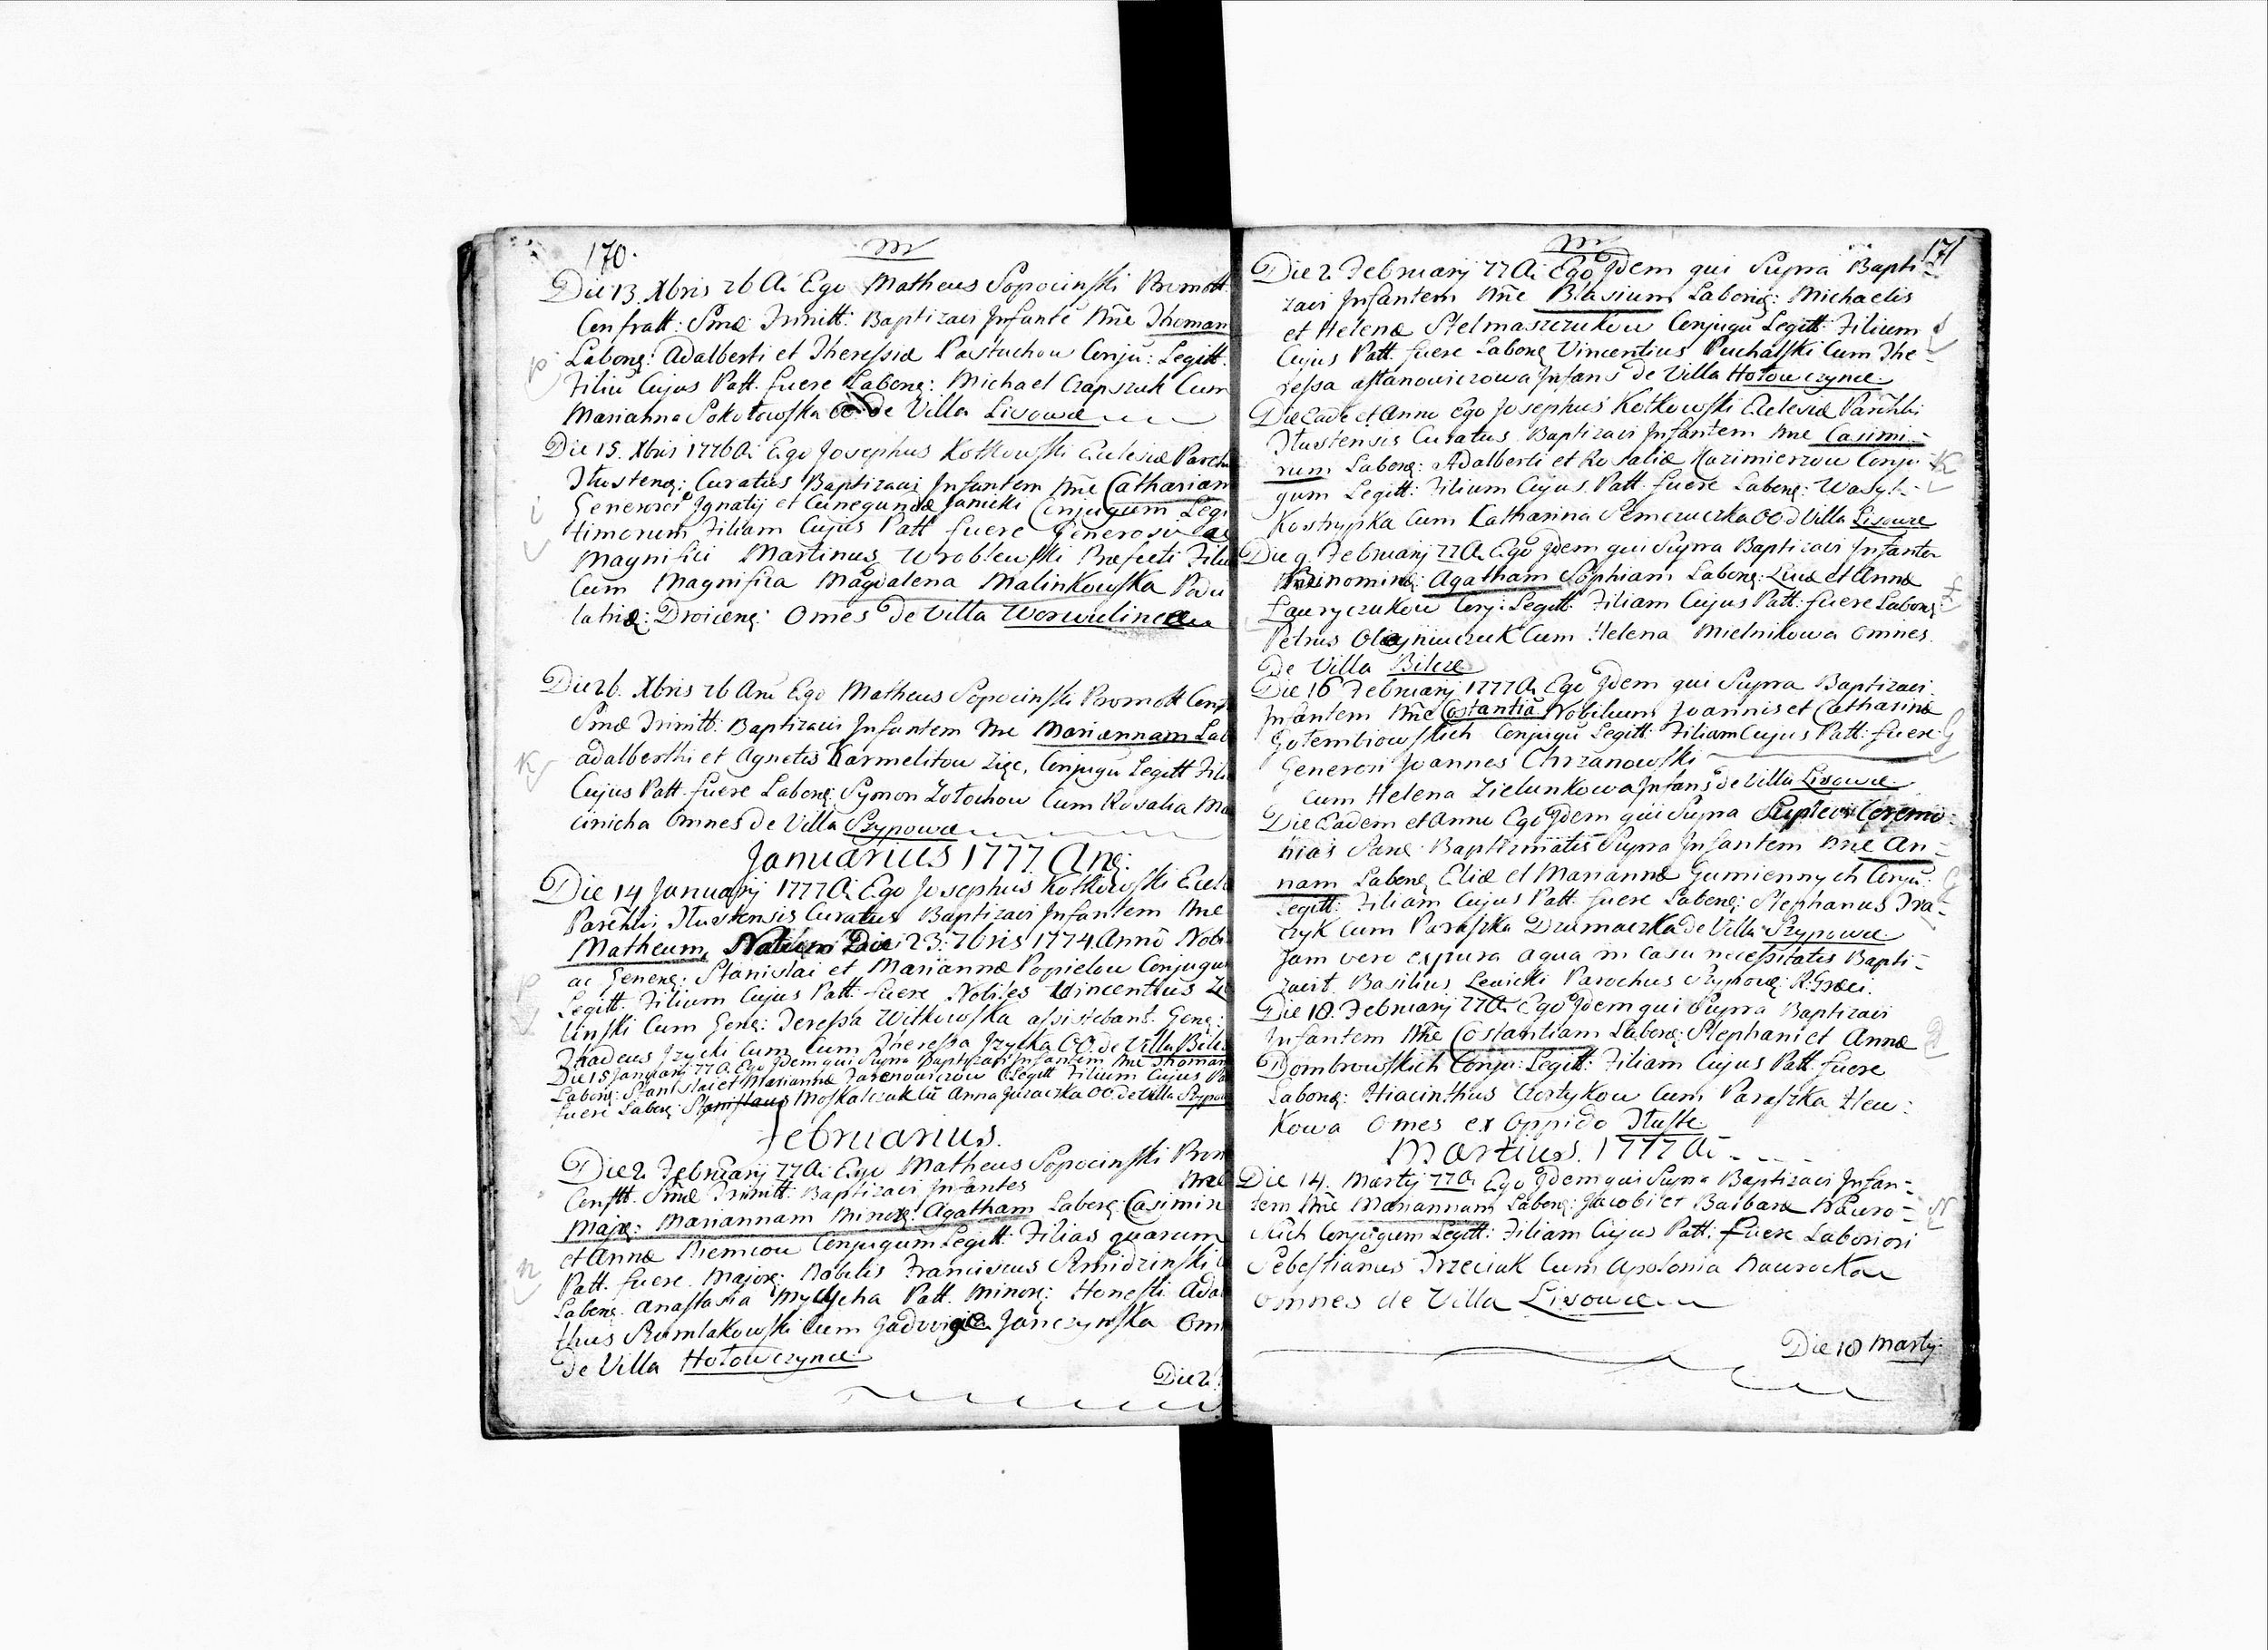 170.
Die 13. Xbris 76 A. Ego Matheus Sopocinski Promott.
Confratt: Smæ Trinitt: Baptizavi Infante Nne Thomam
Labons: Adalberti et Theressiæ Pastuchow Conju: Legitt.
Filiu Cujus Patt. fuere Labons: Michael Czapszuk Cum
Marianna Sokołowska OO. de Villa Lisowce
Die 15. Xbris 1776 A. Ego Josephus Kotkowski Eclesiæ Paroch
Tłustens: Curatus Baptizavi Infantem Nne Catharinam
Generosor Ignatij et Cunegundæ Janicki Conjugum Legi
timorum Filiam Cujus Patt fuere Generosi ac
Magnifici Martinus Wroblewski Præfecti Filiu
Cum Magnifica Magdalena Malinkowska
Omes de Villa Worwulince
Die 26. Xbris 76 Ann Ego Matheus Sopocinski Promott Conf
Smæ Trinitt: Baptizavi Infantem Nne Mariannam Lab
adalberthi et Agnetis Karmelitow Conjugu Legitt Fili
Cujus Patt. fuere Labons: Symon Zołochow Cum Rosalia Ma
cinicha Omnes de Villa Szypowce
Januarius 1777. Ann:
Die 14 Januarij 1777 A. Ego Josephus Kotkowski Ecle
Parchli: Tłustensis Curatus Baptizavi Infantem Nne
Matheum, Natum Die 23. 7bris 1774 Anno Nobi
ac Geners: Stanislai et Mariannæ Popielow Conjugu
Legitt: Filium Cujus Patt: fuere Nobiles Vincentius Zi
linski Cum Gens: Teressa Witkowska assistebant. Gens:
Thadeus Jzycki Cum Cum Theressa Jzycka OO. de Villa Bilcze
Die 15 Januarij 77 A. Ego Idem qui Supra Baptizavi Infantem Nne Thomam
Labons: Stanislai et Mariannæ Jarenowiczow C Legitt Filium Cujus Pa
fuere Labons: Stanislaus Moskalczuk Cu Anna OO. de Villa Szypow
Februarius.
Die 2 Februarij 77 A. Ego Matheus Sopocinski Prom
Confrtt. Smæ Trinitt: Baptizavi Infantes Nne
Majs: Mariannam Minors: Agatham Labons: Casimiri
et Annæ Niemcow Conjugum Legitt: Filias quarum
Patt. fuere Majors: Nobilis Franciscus Smidzinski
Labons. Anastasia Patt. Minors: Honesti Adal
thus Rumlakowski Cum Jadwiga Janczynska Omn
de Villa Hołowczynce
Die 2.
171
Die 2. Februarij 77 A. Ego Idem qui Supra Bapti-
zavi Infantem Nne Blasium Laborios: Michaelis
et Helenæ Stelmaszczukow Conjugu Legitt: Filium
Cujus Patt. fuere Labons Vincentius Puchalski Cum The-
ressa astanowiczowa Infans de Villa Hołowczynce
Die Eade et Anno Ego Josephus Kotkowski Eclesiæ Parchli
Tłustensis Curatus Baptizavi Infantem Nne Casimi-
rum Labons: Adalberti et Rosaliæ Kazimierzow Conju
gum Legitt: Filium Cujus Patt. fuere Labons: Wasyl-
Kostrypka Cum Catharina Semczuczka OO d Villa Lisowce
Die 9. Februarij 77 A. Ego Idem qui Supra Baptizavi Infante
Binomine: Agatham Sophiam Labons: Lucæ et Annæ
Lauryczukow Conj: Legitt: Filiam Cujus Patt: fuere Labons
Petrus Oleyniuczuk Cum Helena Mielnikowa Omnes.
de Villa Bilcze
Die 16 Februarij 1777 A. Ego Idem qui Supra Baptizavi
Infantem Nne Costantiã Nobilium Joannis et Catharinæ
Gotembiowskich Conjugu Legitt: Filiam Cujus Patt: fuere
Generosi Joannes Chrzanowski
Cum Helena Zielunkowa Infans de Villa Lisowce
Die Eadem et Anno Ego Idem qui Supra Suplevi Ceremo-
nias Sane Baptizmatis Supra Infantem Nne An-
nam Labons Eliæ et Mariannæ Gumiennych Conju:
Legitt: Filiam Cujus Patt. fuere Labons: Stephanus Tra-
czyk Cum Paraszka Drumaczka de Villa Szypowce
Jam vero ex pura aqua in Casu necessitatis Bapti-
zavit Basilius Lewicki Parochus Szypows: R: Græci.
Die 18. Februarij 77 A. Ego Idem qui Supra Baptizavi
Infantem Nne Costantiam Labons: Stephani et Annæ
Dombrowskich Conju: Legitt: Filiam Cujus Patt. fuere
Labons: Hiacinthus Czortykow Cum Paraszka Hew:
Kowa Omes ex Oppido Tłuste
Martius. 1777 A.
Die 14. Martij 77 A. Ego Idem qui Supra Baptizavi Infan-
tem Nne Mariannam Labons: Jacobi et Barbaræ Nawro-
ckich Conjugum Legitt: Filiam Cujus Patt: fuere Laboriosi
Sebestianus Trzeciak Cum Apolonia Nawrocka
Omnes de Villa Lisowce
Die 18 Martij